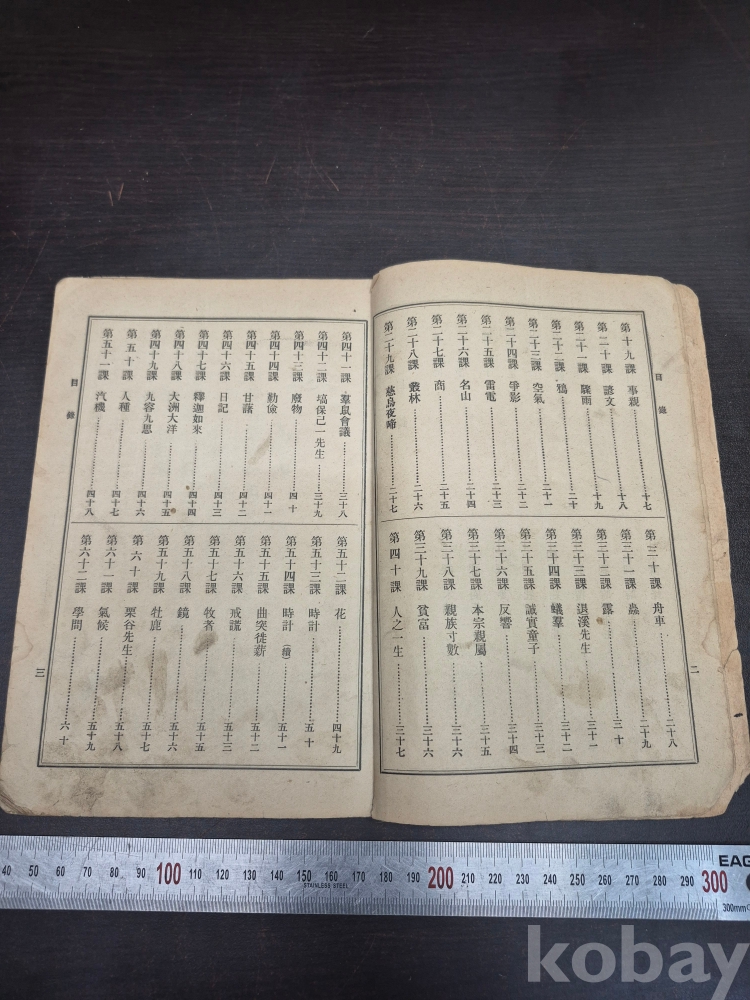 目錄
二
第十九課 事親 十七
第二十課 諺文 十八
第二十一課 驟雨 十九
第二十二課 鴉 二十
第二十三課 空氣 二十一
第二十四課 爭影 二十二
第二十五課 雷電 二十三
第二十六課 名山 二十四
第二十七課 商 二十五
第二十八課 叢林 二十六
第二十九課 慈烏夜啼 二十七
第三十課 舟車 二十八
第三十一課 蟲 二十九
第三十二課 露 三十
第三十三課 退溪先生 三十一
第三十四課 蟻羣 三十二
第三十五課 誠實童子 三十三
第三十六課 反響 三十四
第三十七課 本宗親屬 三十五
第三十八課 親族寸數 三十六
第三十九課 貧富 三十六
第四十課 人之一生 三十七
第四十一課 羣鼠會議 三十八
第四十二課 塙保己一先生 三十九
第四十三課 廢物 四十
第四十四課 勤儉 四十一
第四十五課 甘藷 四十二
第四十六課 日記 四十三
第四十七課 釋迦如來 四十四
第四十八課 大洲大洋 四十五
第四十九課 九容九思 四十六
第五十課 人種 四十七
第五十一課 汽機 四十八
第五十二課 花 四十九
第五十三課 時計 五十
第五十四課 時計(續) 五十一
第五十五課 曲突徙薪 五十二
第五十六課 戒謊 五十三
第五十七課 牧者 五十五
第五十八課 鏡 五十六
第五十九課 牡鹿 五十七
第六十課 栗谷先生 五十八
第六十一課 氣候 五十九
第六十二課 學問 六十
目錄
三
40 50 60 70 80 90 100 110 120 130 140 150 160 170 180 190 200 210 220 230 240 250 260 270 280 290 300
STAINLESS STEEL
EAG
300mm
kobay